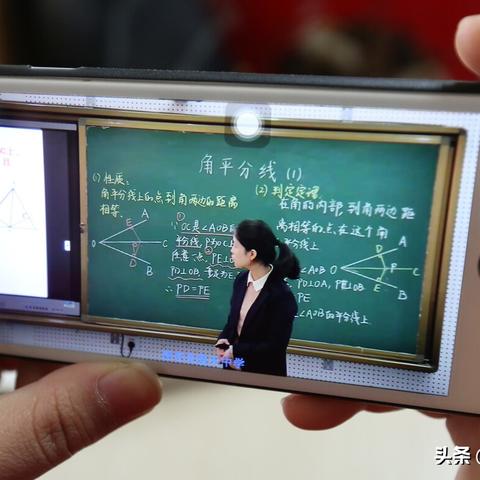 角平分线 (1)
(1) 性质：
角平分线上的点到角两边的距离
相等.
①
∵ OC是∠AOB的
平分线, P为OC上
任意一点, PE⊥
PD⊥OB, 垂足为E
∴ PD=PE
A
E
O
P
C
D
B
(2) 判定定理
在角的内部到角两边距
离相等的点,在这个角
平分线上
∠AOB
PD⊥OA, PE⊥OB
PE
∠AOB的平分线上
A
D
O
P
C
E
B
中学
头条 @